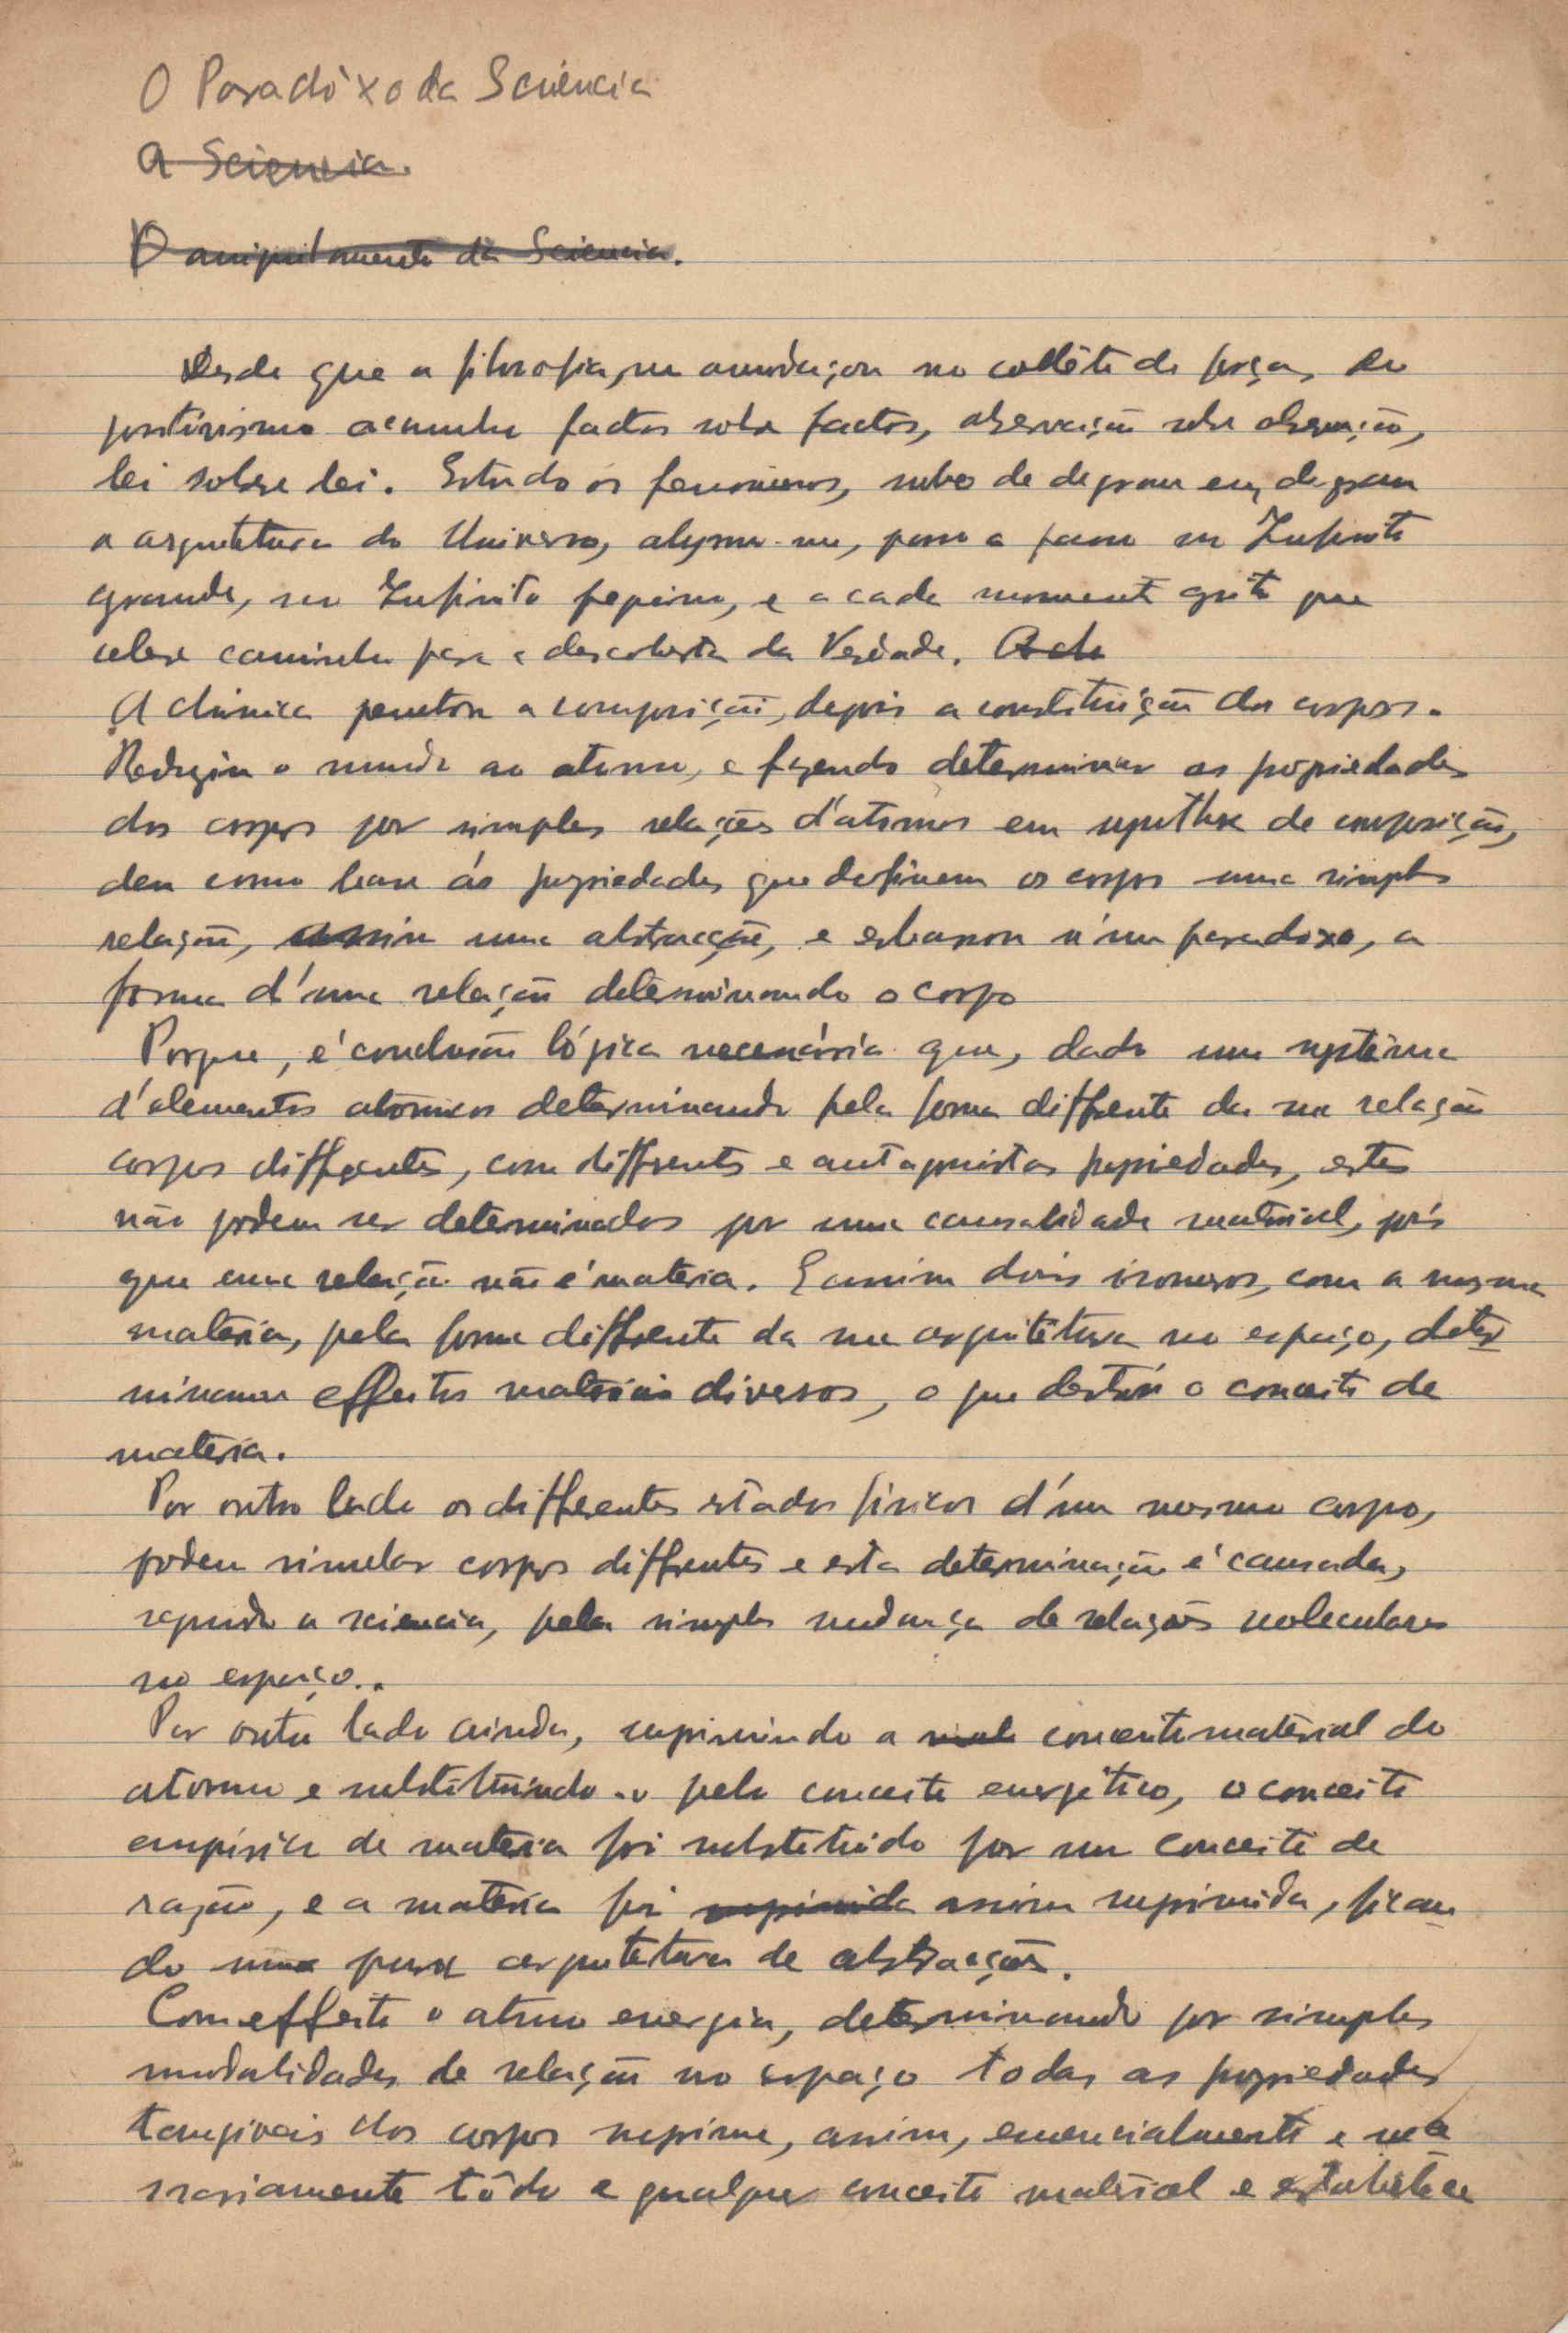 O Paradóxo da Sciencia
A Sciencia.
O aniquilamento da Sciencia.
Desde que a filosofia, se amordaçou no collête de força, do
positivismo acumula factos sobre factos, observação sobre observação,
lei sobre lei. Estuda os fenomenos, sobe de degrau em degrau
a arquitetura do Universo, abysma-se, passo a passo no Infinito
grande, no Infinito pequeno, e a cada momento grita que
caminha para a descoberta da Verdade.
A chimica penetrou a composição, depois a constituição dos corpos.
Reduziu o mundo ao atomo, e fazendo determinar as propriedades
dos corpos por simples relações d'atomos em synthese de composição,
deu como base ás propriedades que definem os corpos uma simples
relação, assim uma abstracção, e esbarrou n'um paradoxo, a
forma d'uma relação determinando o corpo
Porque, é conclusão lógica necessária que, dado um systema
d'elementos atomicos determinando pela forma diffrente da sua relação
corpos diffrentes, com diffrents e antagonistas propriedades, estes
não podem ser determinados por uma causalidade material, pois
que uma relação não é materia. E assim dois isomeros, com a mesma
materia, pela forma diffrente da sua arquitétura no espaço, deter
minam effeitos materiais diversos, o que destrói o conceito de
materia.
Por outro lado os differentes estados fisicos d'um mesmo corpo,
podem simular corpos diffrentes e esta determinação é causada,
segundo a sciencia, pela simples mudança de relações moleculares
no espaço..
Por outro lado ainda, suprimindo o conceito material do
atomo e substituindo-o pelo conceito energético, o conceito
empirico de materia foi substituido por um conceito de
razão, e a materia foi suprimida assim suprimida, fican
do uma pura arquitetura de abstracções.
Com effeito o atomo energia, determinando por simples
modalidades de relação no espaço todas as propriedades
tangiveis dos corpos suprime, assim, essencialmente e nece
ssariamente tôdo e qualquer conceito material e estabelece